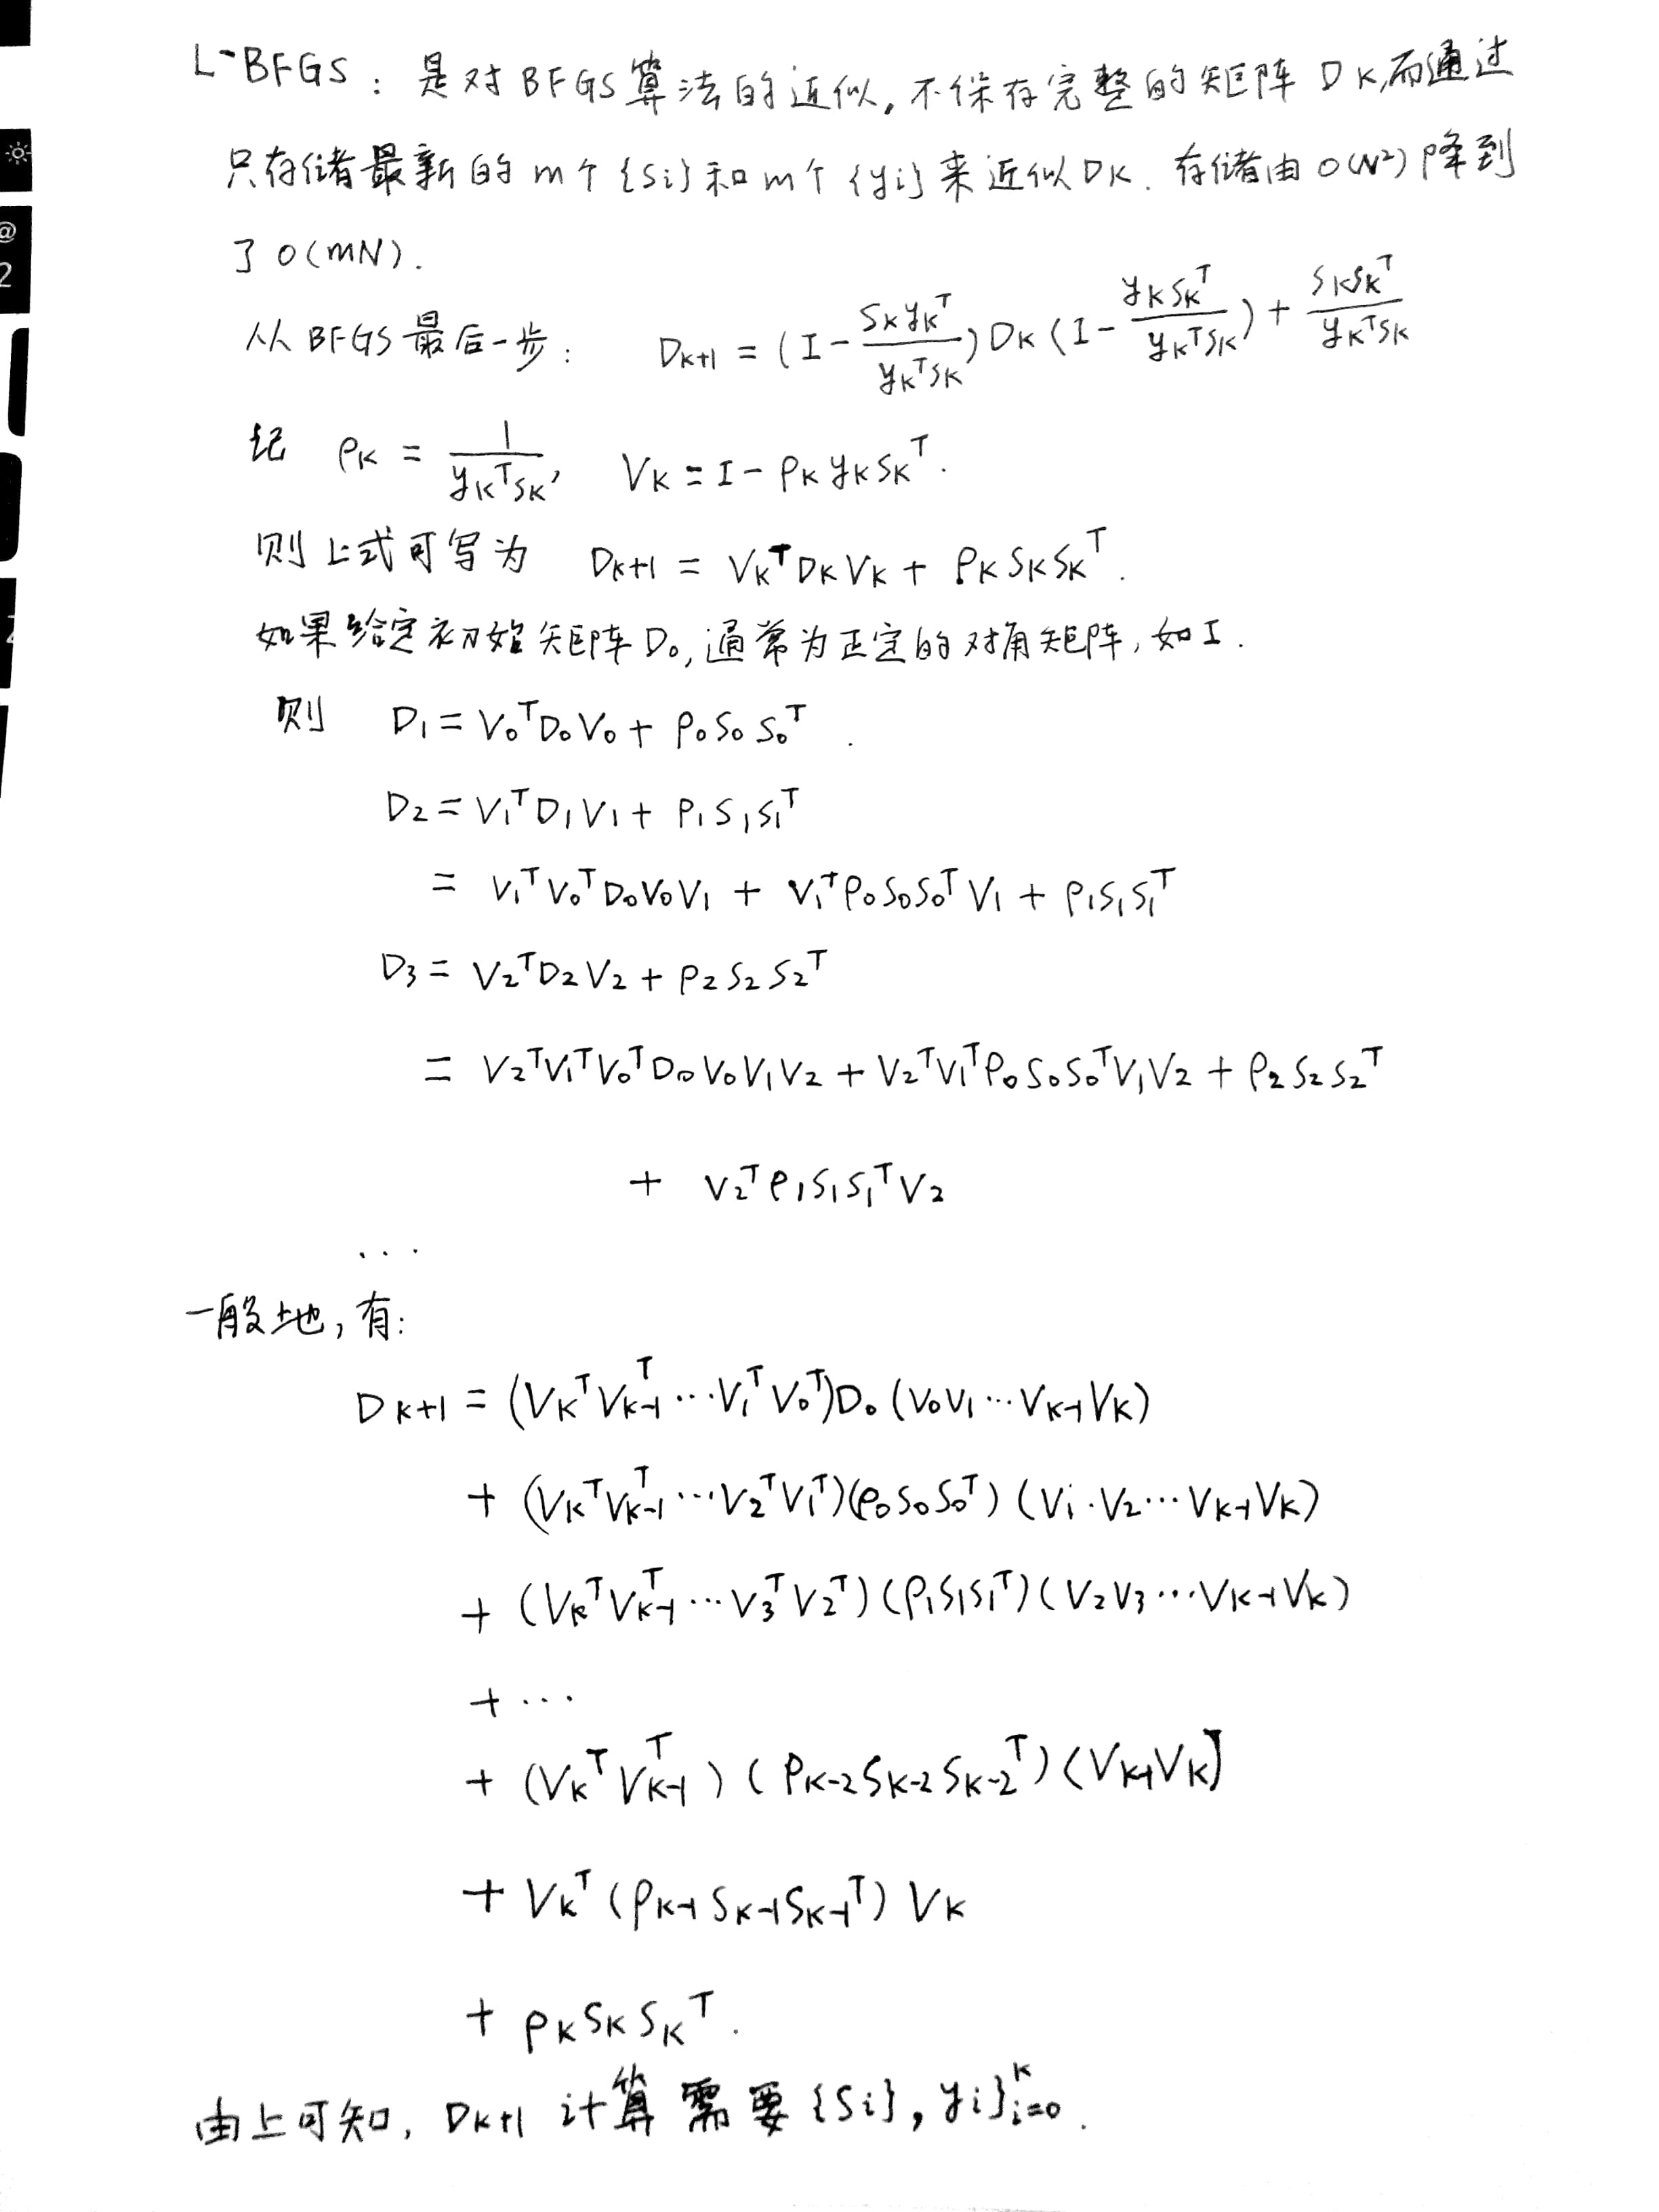 L-BFGS：是对BFGS算法的近似，不保存完整的矩阵 D_K，而通过
只存储最新的m个{s_i}和m个{y_i}来近似D_K．存储由O(N²)降到
了O(mN).
从BFGS最后一步： D_{K+1} = (I - \frac{S_K y_K^T}{y_K^T S_K}) D_K (I - \frac{y_K S_K^T}{y_K^T S_K}) + \frac{S_K S_K^T}{y_K^T S_K}
记 ρ_K = \frac{1}{y_K^T S_K}, V_K = I - ρ_K y_K S_K^T.
则上式可写为 D_{K+1} = V_K^T D_K V_K + ρ_K S_K S_K^T.
如果给定初始矩阵D_0，通常为正定的对角矩阵，如I.
则 D_1 = V_0^T D_0 V_0 + ρ_0 S_0 S_0^T.
D_2 = V_1^T D_1 V_1 + ρ_1 S_1 S_1^T
= V_1^T V_0^T D_0 V_0 V_1 + V_1^T ρ_0 S_0 S_0^T V_1 + ρ_1 S_1 S_1^T
D_3 = V_2^T D_2 V_2 + ρ_2 S_2 S_2^T
= V_2^T V_1^T V_0^T D_0 V_0 V_1 V_2 + V_2^T V_1^T ρ_0 S_0 S_0^T V_1 V_2 + ρ_2 S_2 S_2^T
+ V_2^T ρ_1 S_1 S_1^T V_2
...
一般地，有：
D_{K+1} = (V_K^T V_{K-1}^T ⋯ V_1^T V_0^T) D_0 (V_0 V_1 ⋯ V_{K-1} V_K)
+ (V_K^T V_{K-1}^T ⋯ V_2^T V_1^T)(ρ_0 S_0 S_0^T)(V_1·V_2 ⋯ V_{K-1} V_K)
+ (V_K^T V_{K-1}^T ⋯ V_3^T V_2^T)(ρ_1 S_1 S_1^T)(V_2 V_3 ⋯ V_{K-1} V_K)
+ ⋯
+ (V_K^T V_{K-1}^T)(ρ_{K-2} S_{K-2} S_{K-2}^T)(V_{K-1} V_K)
+ V_K^T (ρ_{K-1} S_{K-1} S_{K-1}^T) V_K
+ ρ_K S_K S_K^T.
由上可知，D_{K+1} 计算需要{S_i}, y_i}_{i=0}^K.
@
2